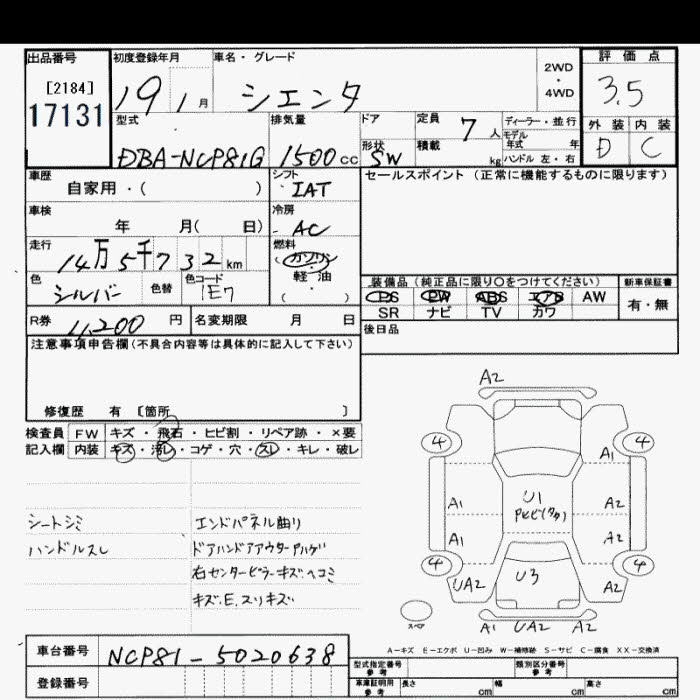 出品番号 初度登録年月 車名・グレード 2WD・4WD 評価点
[2184] 17131 19 1月 シエンタ 3.5
型式 排気量 ドア 定員 7人 ディーラー・並行 外装 内装
モデル年式 年
DBA-NCP81G 1500cc 形状 SW 積載 kg ハンドル 左・右 D C
車歴 シフト セールスポイント (正常に機能するものに限ります)
自家用・( ) IAT
車検 冷房
年 月( 日) AC
走行 燃料
14万5千732km ガソリン
軽・油
(・)
色 色替 色コード 装備品 (純正品に限り○をつけてください) 新車保証書
シルバー 1E7 PS PW ABS エアB AW 有・無
SR ナビ TV カワ
R券 11,200円 名変期限 月 日 後日品
注意事項申告欄(不具合内容等は具体的に記入して下さい)
修復歴 有 [箇所 ]
検査員 FW キズ・飛石・ヒビ割・リペア跡・×要
記入欄 内装 キズ・汚レ・コゲ・穴・スレ・キレ・破レ
シートシミ エンドパネル曲り
ハンドルスレ ドアハンドアアウターハゲ
右センターピラーキズ.ヘコミ
キズ.E.スリキズ
A2
4 4
A1
A1 U1 A2
A1 A2
4 4
UA2 U3 A2
スペア A1 UA2 A2
A-キズ E-エクボ U-凹み W-補修跡 S-サビ C-腐食 XX-交換済
車台番号 NCP81-5020638 型式指定番号 参考 類別区分番号 参考
登録番号 車庫証明用 参考 長さ cm 幅 cm 高さ cm